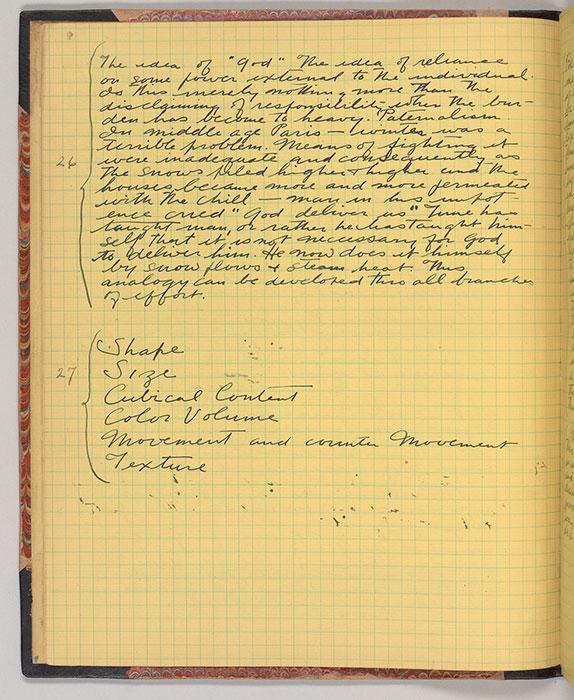 26
The idea of "God" The idea of reliance
on some power external to the individual.
Is this merely nothing more than the
disclaiming of responsibility when the bur-
den has become to heavy. Paternalism
In middle age Paris – winter was a
terrible problem. Means of fighting it
were inadequate and consequently as
the snows piled higher & higher and the
houses became more and more permeated
with the chill – man in his impot
ence cried "God deliver us" Time has
taught man, or rather he has taught him-
self that it is not necessary for God
to deliver him. He now does it himself
by snow plows & steam heat. This
analogy can be developed thru all branches
of effort.
27
Shape
Size
Cubical Content
Color Volume
Movement and counter Movement
Texture